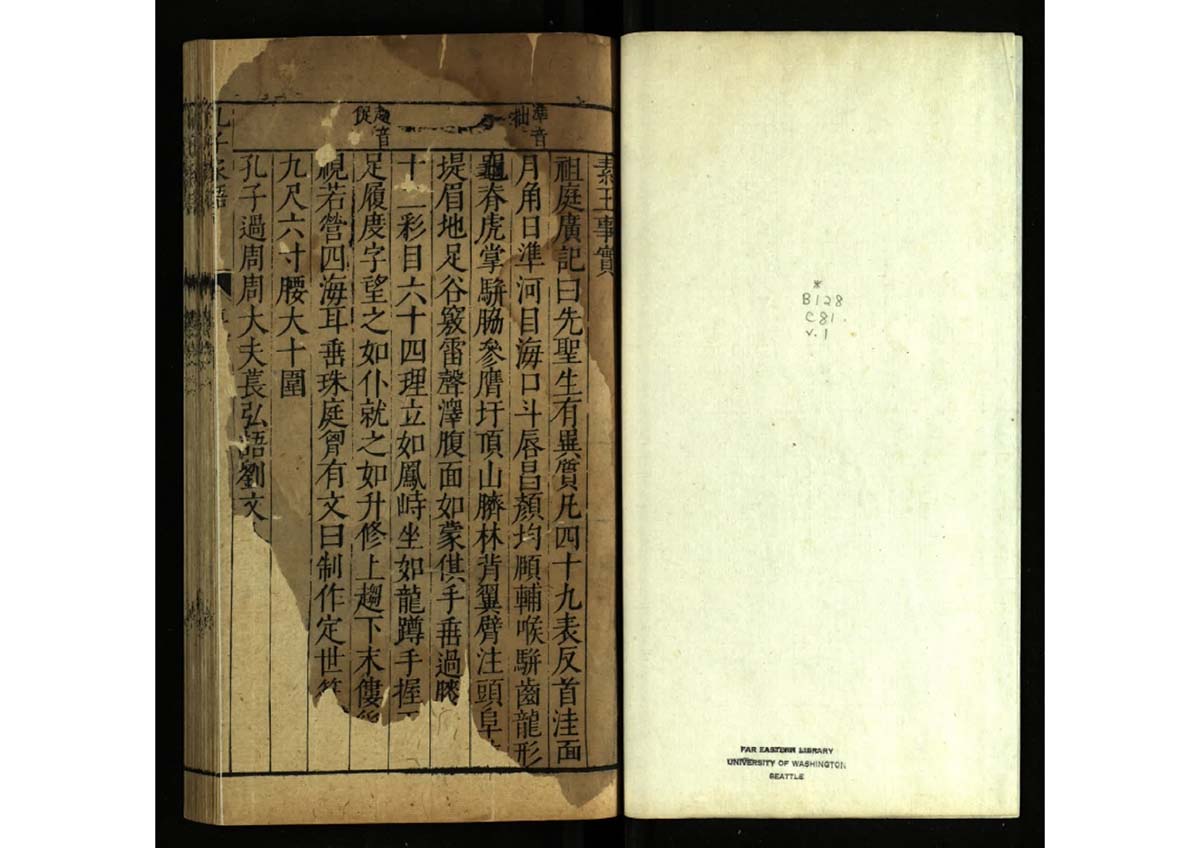 素王事實
祖庭廣記曰先聖生有異質凡四十九表反首洼面
月角日準河目海口斗唇昌顏均頤輔喉駢齒龍形
龜脊虎掌駢脇參膺圩頂山臍林背翼臂注頭阜
堤眉地足谷竅雷聲澤腹面如蒙倛手垂過膝
十二彩目六十四理立如鳳峙坐如龍蹲手握
足履度字望之如仆就之如升修上趨下末僂
視若營四海耳垂珠庭胷有文曰制作定世
九尺六寸腰大十圍
孔子過周周大夫萇弘語劉文
準音
拙
趨音
促
孔子家語
*
B128
C81
v.1
FAR EASTERN LIBRARY
UNIVERSITY OF WASHINGTON
SEATTLE